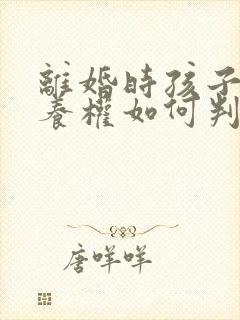 離婚時孩子
養權如何判
唐咩咩